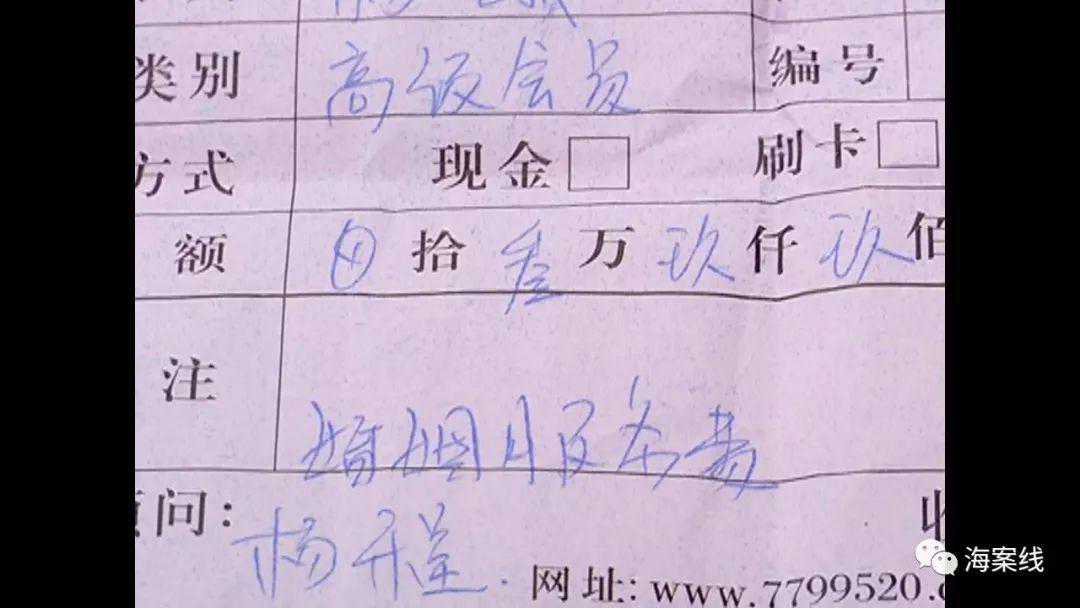 类别 高级会员 编号
方式 现金 刷卡
额 拾 叁 万 玖 仟 玖 佰
注
婚姻服务费
问: 杨
网址: www.7799520.
海案线